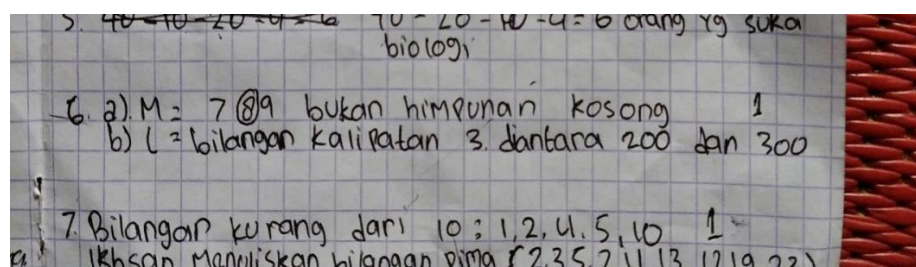 5. 40 - 10 - 20 - 4 = 6 40 - 20 - 10 - 4 = 6 orang yg suka
biologi
6. a). M = 7 8 9 bukan himpunan kosong 1
b) L = bilangan kalipatan 3. diantara 200 dan 300
7. Bilangan kurang dari 10 : 1, 2, 4, 5, 10 1
Ikhsan Menuliskan bilangan Prima { 2, 3, 5, 7, 11, 13, 17, 19, 23 }